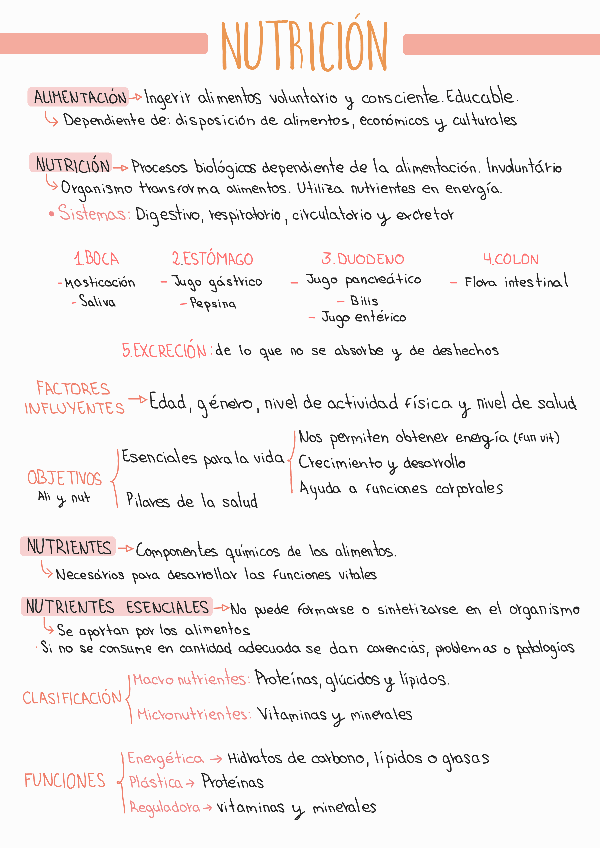 NUTRICIÓN
ALIMENTACIÓN → Ingerir alimentos voluntario y consciente. Educable.
↳ Dependiente de: disposición de alimentos, económicos y culturales
NUTRICIÓN → Procesos biológicos dependiente de la alimentación. Involuntário
↳ Organismo transforma alimentos. Utiliza nutrientes en energía.
• Sistemas: Digestivo, respiratorio, circulatorio y excretor
1.BOCA 2.ESTÓMAGO 3.DUODENO 4.COLON
- Masticación - Jugo gástrico - Jugo pancreático - Flora intestinal
- Saliva - Pepsina - Bilis
- Jugo entérico
5.EXCRECIÓN: de lo que no se absorbe y de deshechos
FACTORES
INFLUYENTES → Edad, género, nivel de actividad física y nivel de salud
OBJETIVOS
Ali y nut
Esenciales para la vida
Nos permiten obtener energía (Fun vit)
Crecimiento y desarrollo
Ayuda a funciones corporales
Pilares de la salud
NUTRIENTES → Componentes químicos de los alimentos.
↳ Necesários para desarrollar las funciones vitales
NUTRIENTES ESENCIALES → No puede formarse o sintetizarse en el organismo
↳ Se aportan por los alimentos
· Si no se consume en cantidad adecuada se dan carencias, problemas o patologías
CLASIFICACIÓN
Macronutrientes: Proteínas, glúcidos y lípidos.
Micronutrientes: Vitaminas y minerales
FUNCIONES
Energética → Hidratos de carbono, lípidos o grasas
Plástica → Proteínas
Reguladora → vitaminas y minerales